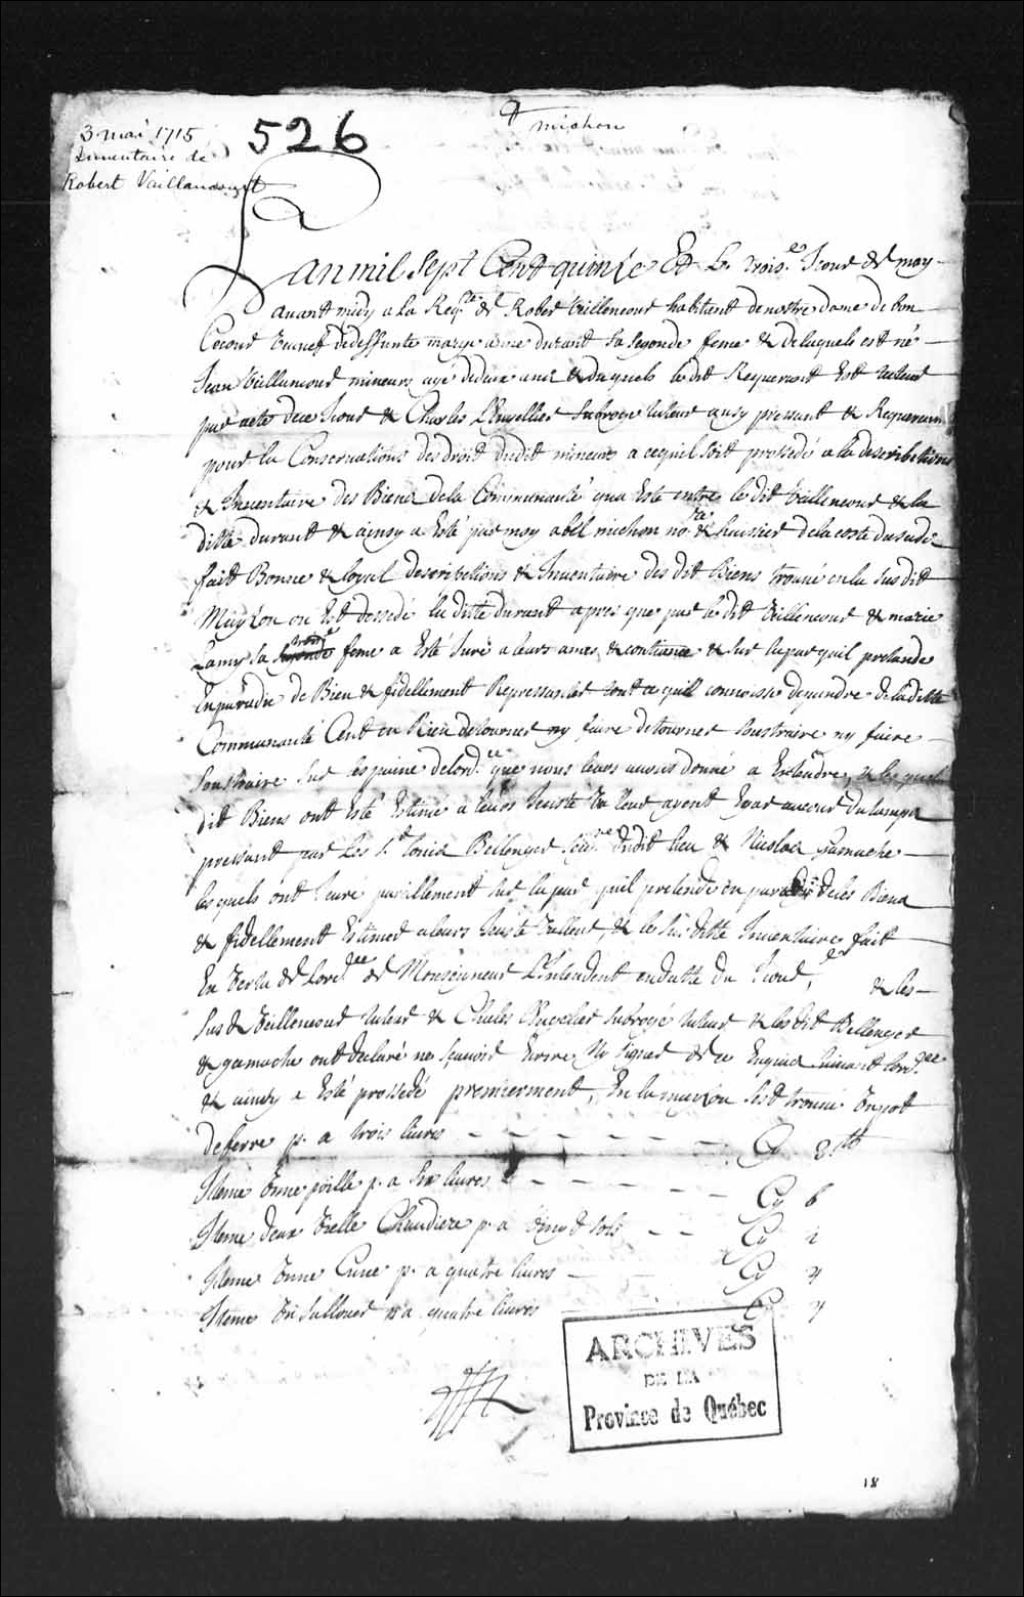 3 mai 1715
Inventaire de
Robert Vaillancourt
526
michon
Lan mil sept Cent quinse Et Le trois.e Jour de may
auant midy a la Req.te de Rober Väillencour habitant de nostre dame de bon
Cecour veuuef de deffunte marye anne durant sa segonde feme & de laquele est né
Jean Väillencour mineurs agé de deux ans & duquels le dit Requerant Est tuteur
par acte de ce Jour & Charles L'Huyellier subroge tuteur ausy pressant & Requerant
pour la Conseruations des droit dudit mineurs a ce quil soit prossedé a la describtions
& Inuentaire des Biens de la Communauté qua Esté entre le dit Väillencour & la
ditte durant & ainsy a Esté par moy abel michon no.re & huissier de la coste du sud
fait Bonne & loyal describtions & Inuentaire des dit Biens trouué en la susdit
Mayson ou Est dessedé la ditte durant apres que par le dit Väillencour & marie
Lamy sa troisie feme a Esté Juré a leurs ames & contiance & sur la par quil pretande
En paradis de Bien & fidellement Repressanter tout ce quill connoisse depandre de la ditte
Communauté Cent en Rien detourner ny faire detourner soustraire ny faire
soustraire sur les paine de lord.ce que nous leurs auons donné a Entendre, & les quels
dit Biens ont Esté Estimé a leurs Juste valleur ayent Egar au cour du tamps
pressant par Les s.r Louis Bellenger Seig.re dudit lieu & Nicolas Gamache
les quels ont Jure parillement sur la par quil pretende en paradis de les Biens
& fidellement Estimer a leurs Juste valleur, & le susditte Inuentaire fait
En vertu de lord.ce de Monseigneur L'Intendent en datte du Jour, & les
susd Väillencour tuteur & Charles L'Huyelier subrogé tuteur & les dit Bellenger
& gamache ont declaré ne scauoir Ecrire Ny signer de ce Enquis suiuant lord.ce
& ainsy a Esté prossedé premierment, En la mayson sest trouué vn pot
de ferre p. a trois liures Cy 3 lt
Iteme vnne poille p. a six liures Cy 6
Iteme deux vielle Chaudiere p. a vingt sols Cy 1
Iteme vnne Cuue p. a quatre liures Cy 4
Iteme vn sallouer p. a quatre liures Cy 4
ARCHIVES
DE LA
Province de Québec
18